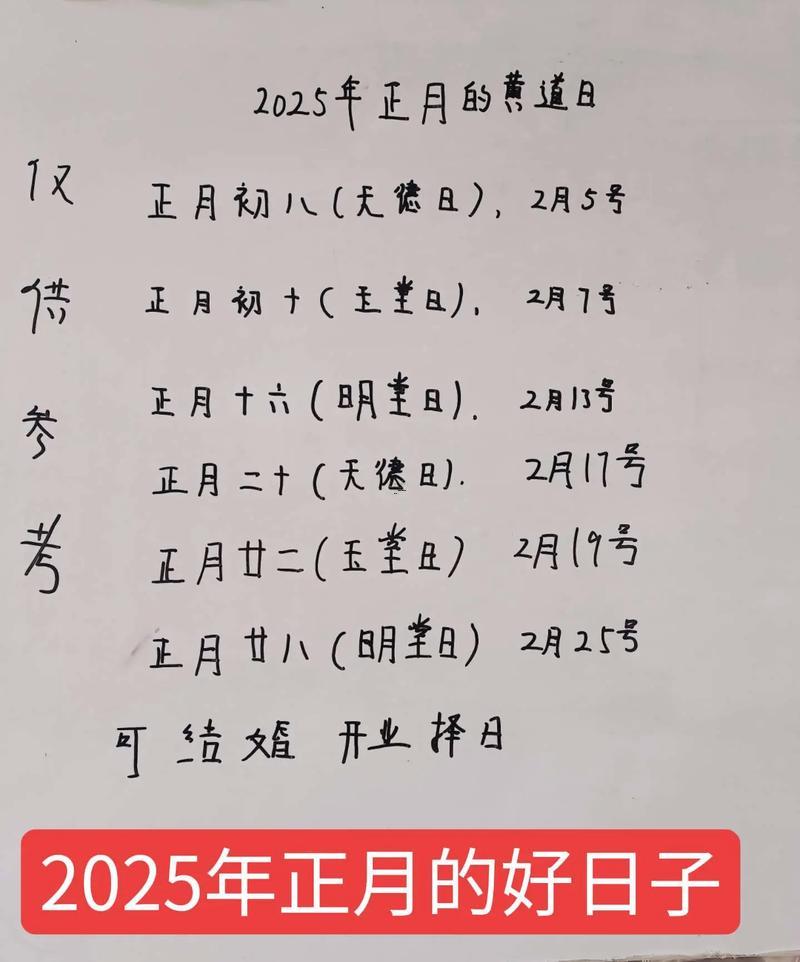 2025年正月的黄道日
仅供参考
正月初八(天德日), 2月5号
正月初十(玉堂日), 2月7号
正月十六(明堂日). 2月13号
正月二十(天德日). 2月17号
正月廿二(玉堂日) 2月19号
正月廿八(明堂日) 2月25号
可结婚 开业择日
2025年正月的好日子